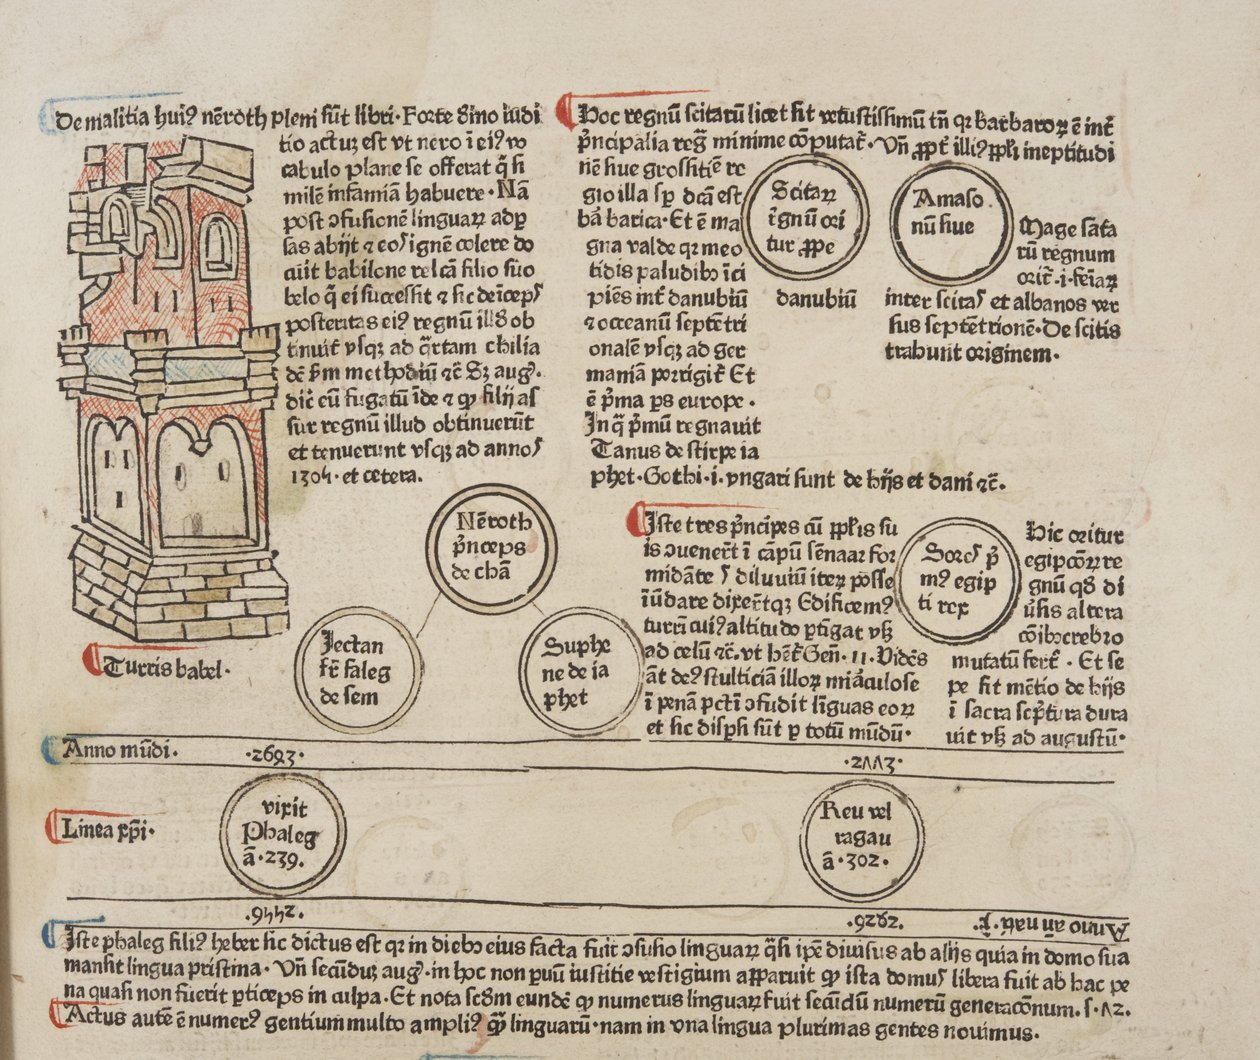 De malitia hui⁹ nēroth pleni sūt libri· Forte diuino iudi
tio actuȝ est vt nero ī ei⁹ vo
cabulo plane se offerat q̄ si
milē infamiā habuere· Nā
post ↄfusionē linguaꝝ ad ꝑ
sas abijt ⁊ eoſ ignē colere do
cuit babilone relcā filio suo
belo q̄ ei successit ⁊ sic deīcepſ
posteritas ei⁹ regnū ill8 ob
tinuit vsqȝ ad q̄rtam chilia
dē ẜm methodiū ⁊c̄ Sȝ aug⁹·
dic̄ cū fugatū īde ⁊ ꝙ filij as
sur regnū illud obtinuerūt
et tenuerunt vsqȝ ad annoſ
1304· et cetera.
Turris babel·
Nēroth
p̄nceps
de chā
Jectan
fr̄ faleg
de sem
Suphe
ne de ia
phet
Hoc regnū scitarū licet sit vetustissimū tn̄ qꝛ barbaroꝝ ē int̄
p̄ncipalia reg̅ minime cōputat̄· Vn̄ ꝓpt̄ illi⁹ ꝓpl̄i ineptitudi
nē siue grossitiē re
gio illa sꝑ dcā est
baꝛbarica· Et ē ma
gna valde qꝛ meo
tidis paludibꝰ īci
piēs int̄ danubiū
⁊ occeanū septētri
onalē vsqȝ ad ger
maniā porrigit̄ Et
ē p̄ma ps europe·
In q̄ p̄mū regnauit
Tanus de stirpe ia
phet· Gothi· i· vngari sunt de hijs et dani ⁊c̄·
Scitaꝝ
rēgnū ori
tur ꝓpe
danubiū
Amaso
nū siue
Magesāta
rū regnum
orit̄· i· feīaꝝ
inter scitaſ et albanos ver
sus septētrionē· De scitis
trahunt originem·
Iste tres p̄ncipes cū ꝓpl̄is su
is ↄuenerūt ī cāpū sēnaar for
midāte ſ diluuiū iteꝝ posse
īūdare dixer̄tqȝ Edificem⁹
turrī cui⁹ altitudo ꝑtīgat vsqȝ
ad celū ⁊c̄· vt het̄ Gen̄· 11· Vidēs
āt de⁹ stulticiā illoꝝ miāculose
ī penā pctī ↄfudit līguas eoꝝ
et sic dispsi sūt ꝑ totū mūdū·
Sores p̄
m⁹ egip
ti rex
Hic oritur
egipcōꝝ re
gnū q8 di
ūsis altera
cōibꝰ crebro
mutatū fert̄· Et se
pe fit mētio de hijs
ī sacra scp̄tura dura
uit vsqȝ ad augustū·
Anno mūdi· ·2693· ·2773·
Linea xp̄i·
vixit
Phaleg
ā· 239.
Reu vel
ragau
ā· 302·
·2449· ·2629·
Anno an̄ nati· x̄·
Iste phaleg fili⁹ heber sic dictus est qꝛ in diebꝰ eius facta fuit ↄfusio linguaꝝ q̄si ipē diuisus ab alijs quia in domo sua
mansit lingua pristina· Vn̄ secūduȝ aug⁹· in hoc non puū iustitie vestigium apparuit ꝙ ista domuſ libera fuit ab hac pe
na quasi non fuerit ꝑticeps in culpa· Et nota scd̄m eundē ꝙ numerus linguaꝝ fuit secūdū numerū generacōnum· s· 72·
Actus autē ē numer⁹ gentium multo ampli⁹ qꝫ linguarū· nam in vna lingua plurimas gentes nouimus·